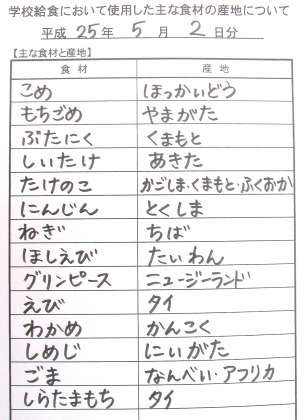 学校給食において使用した主な食材の産地について
平成 25年 5月 2日分
【主な食材と産地】
食材 産地
こめ ほっかいどう
もちごめ やまがた
ぶたにく くまもと
しいたけ あきた
たけのこ かごしま・くまもと・ふくおか
にんじん とくしま
ねぎ ちば
ほしえび たいわん
グリンピース ニュージーランド
えび タイ
わかめ かんこく
しめじ にいがた
ごま なんべい・アフリカ
しらたまもち タイ